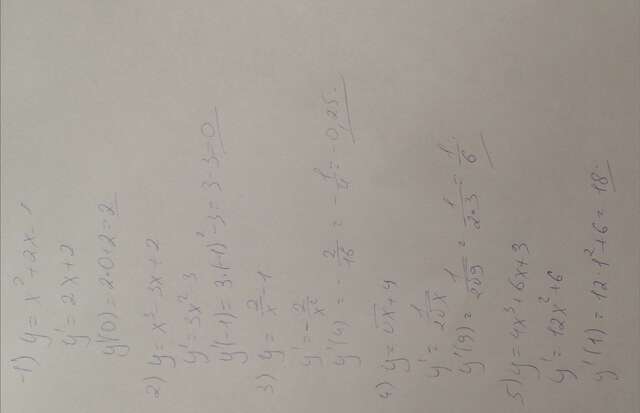 1) y = x² + 2x - 1
y' = 2x + 2
y'(0) = 2·0·2 = 2
2) y = x³ - 3x + 2
y' = 3x² - 3
y'(-1) = 3·(-1)² - 3 = 3 - 3 = 0
3) y = 2/x - 1
y' = - 2/x²
y'(4) = - 2/16 = - 1/4 = - 0,25.
4) y = √x + 4
y' = 1/2√x
y'(9) = 1/2√9 = 1/2·3 = 1/6.
5) y = 4x³ + 6x + 3
y' = 12x² + 6
y'(1) = 12·1² + 6 = 18.